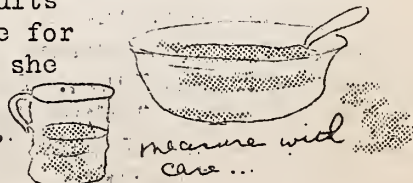 ults
e for
she
measure with
care...